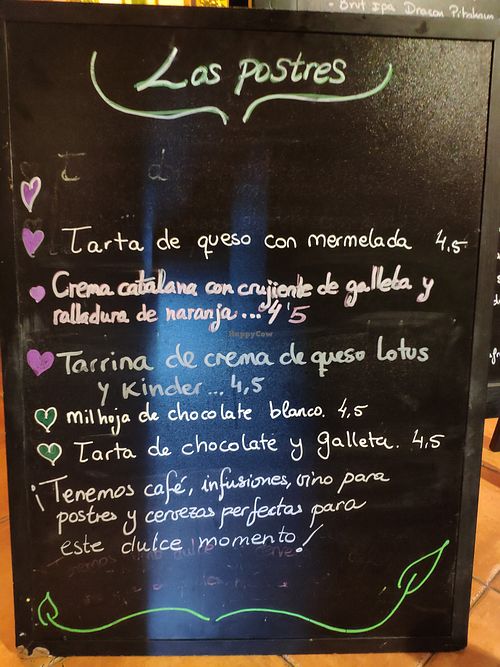 - Brut Ipa Dragon Pitahaya
Los postres
Tarta de queso con mermelada 4,5
Crema catalana con crujiente de galleta y
ralladura de naranja... 4'5
HappyCow
Tarrina de crema de queso Lotus
y Kinder... 4,5
milhoja de chocolate blanco. 4,5
Tarta de chocolate y galleta. 4,5
¡Tenemos café, infusiones, vino para
postres y cervezas perfectas para
este dulce momento!